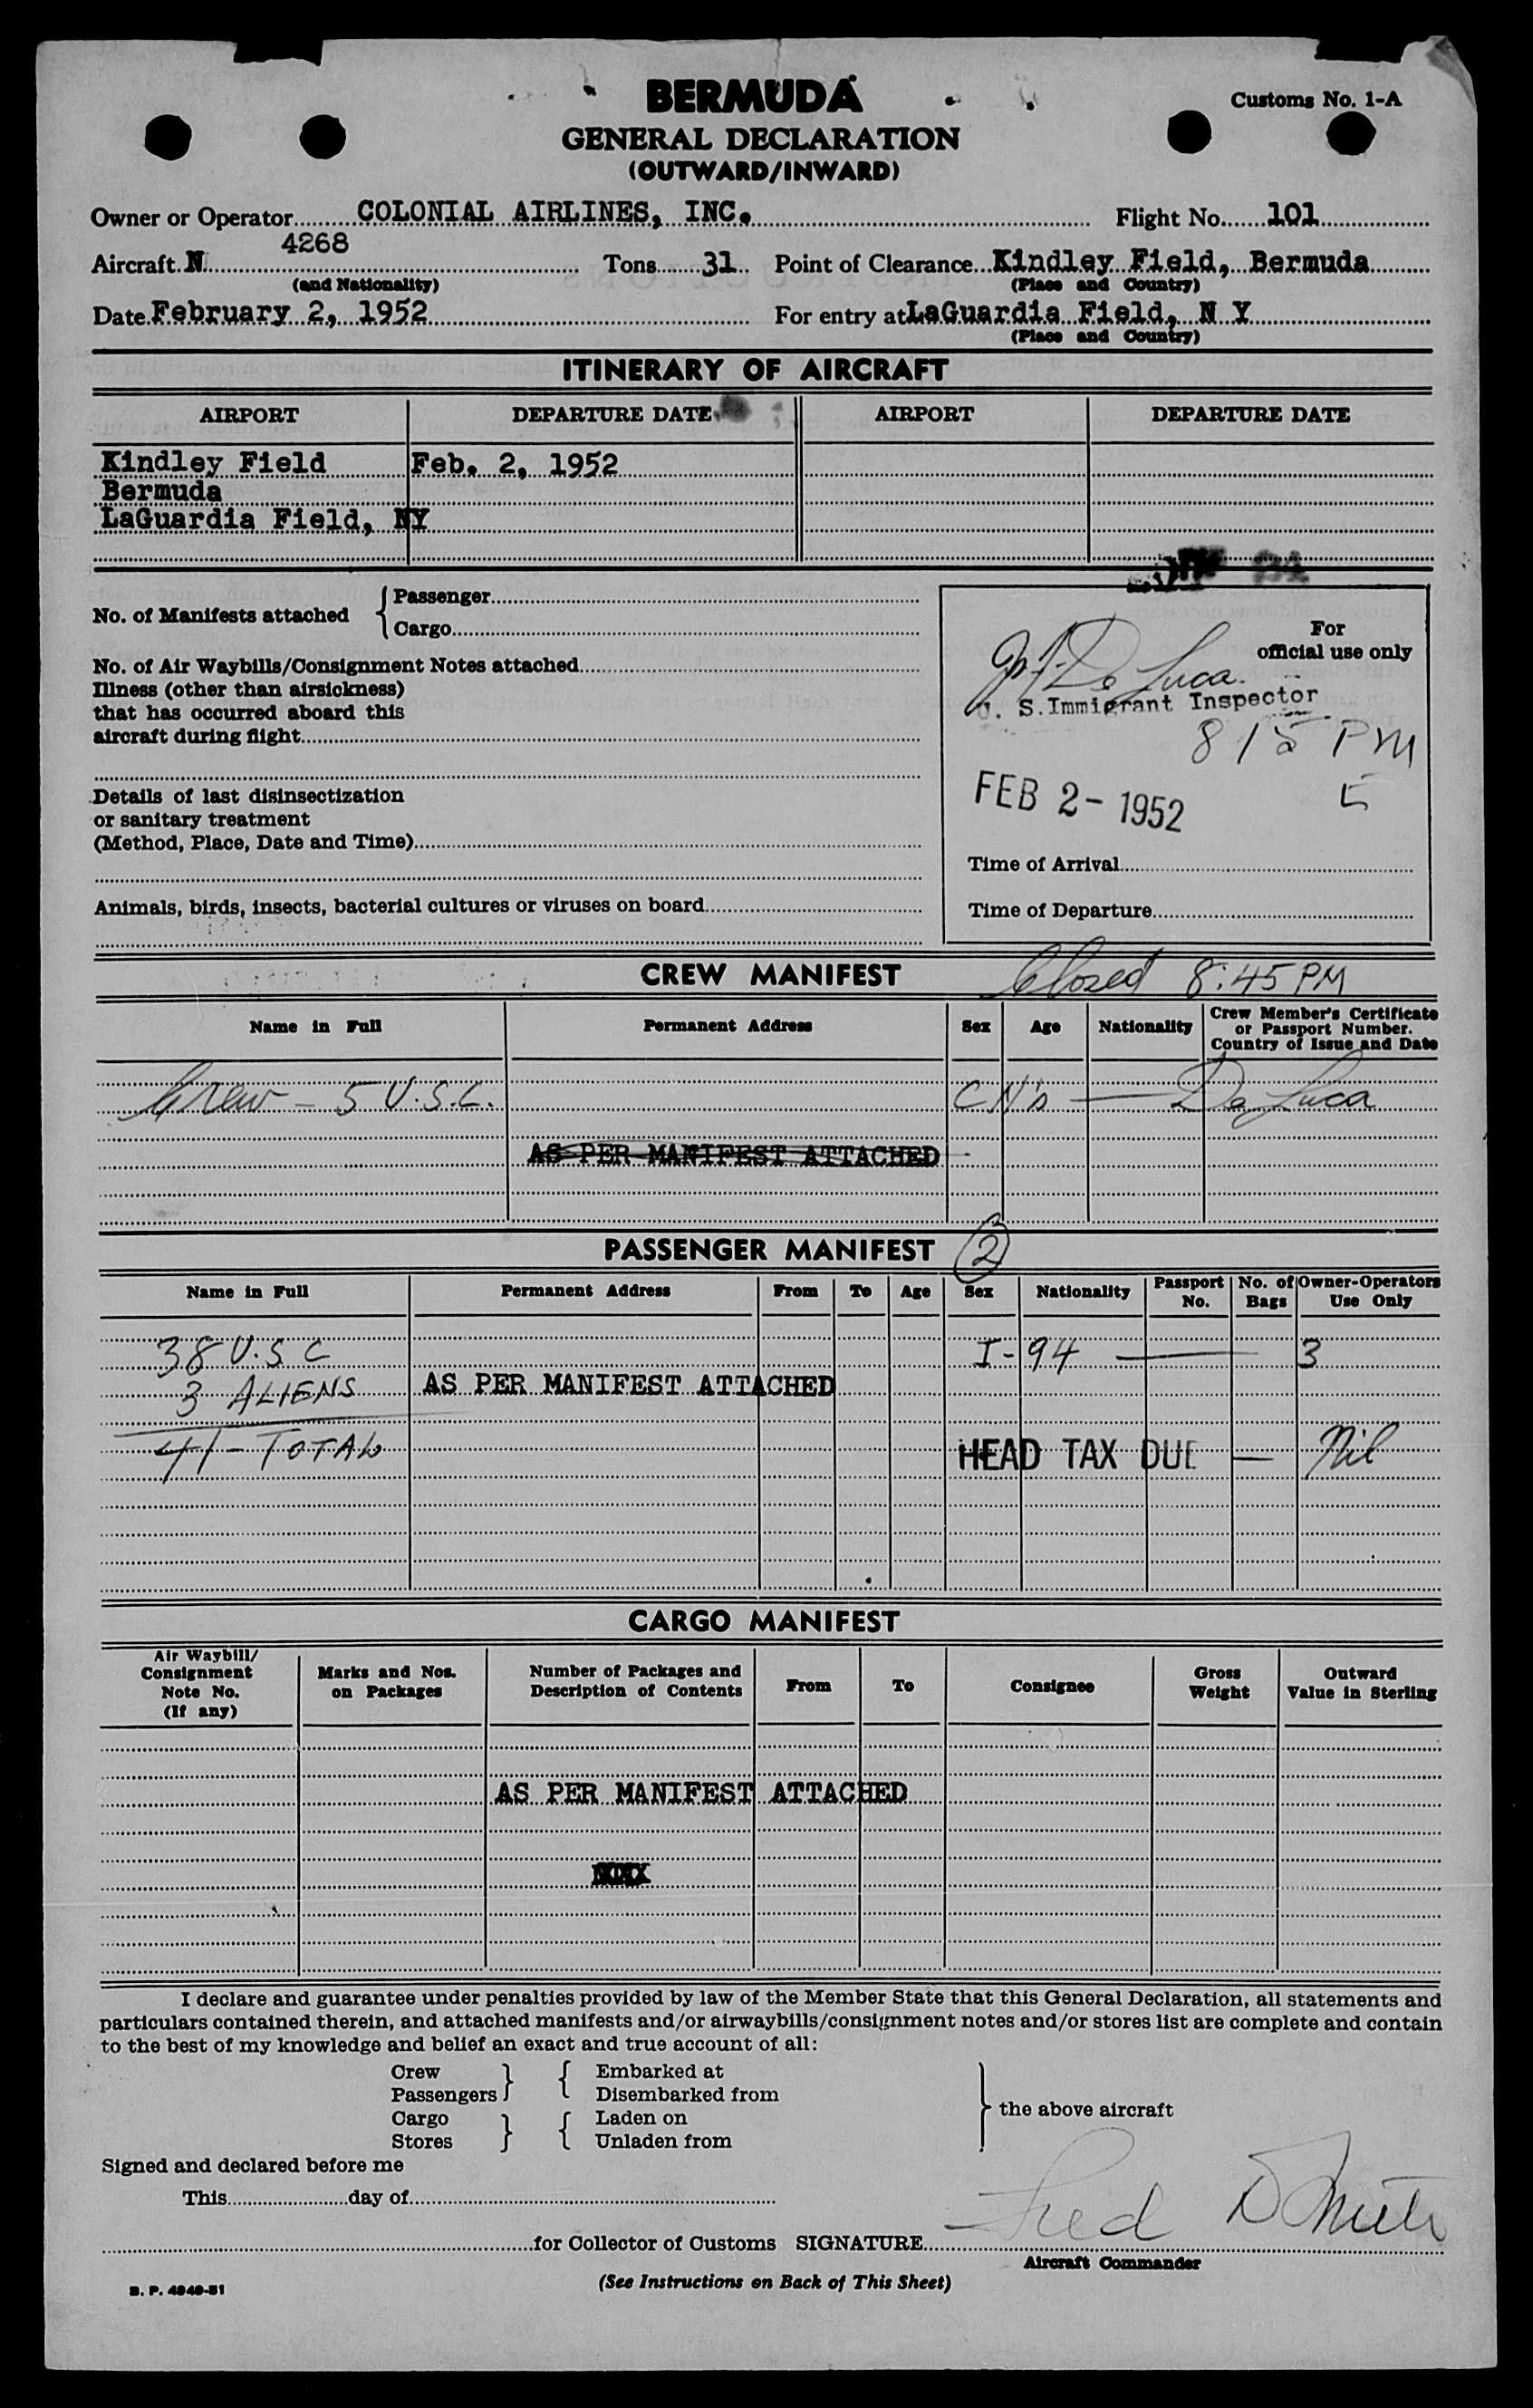 BERMUDA
Customs No. 1-A
GENERAL DECLARATION
(OUTWARD/INWARD)
Owner or Operator COLONIAL AIRLINES, INC. Flight No. 101
Aircraft N 4268 Tons 31 Point of Clearance Kindley Field, Bermuda
(and Nationality) (Place and Country)
Date February 2, 1952 For entry at LaGuardia Field, N Y
(Place and Country)
ITINERARY OF AIRCRAFT
AIRPORT DEPARTURE DATE AIRPORT DEPARTURE DATE
Kindley Field Feb. 2, 1952
Bermuda
LaGuardia Field, NY
No. of Manifests attached { Passenger
Cargo
No. of Air Waybills/Consignment Notes attached
Illness (other than airsickness)
that has occurred aboard this
aircraft during flight
Details of last disinsectization
or sanitary treatment
(Method, Place, Date and Time)
Animals, birds, insects, bacterial cultures or viruses on board
For
official use only
De Luca
U. S. Immigrant Inspector
815 PM
FEB 2 - 1952 5
Time of Arrival
Time of Departure
CREW MANIFEST Closed 8:45 PM
Name in Full Permanent Address Sex Age Nationality Crew Member's Certificate or Passport Number. Country of Issue and Date
Crew - 5 U.S.C. De Luca
AS PER MANIFEST ATTACHED
PASSENGER MANIFEST 2
Name in Full Permanent Address From To Age Sex Nationality Passport No. No. of Bags Owner-Operators Use Only
38 U.S C I-94 — 3
3 ALIENS AS PER MANIFEST ATTACHED
41 - TOTAL HEAD TAX DUE — Nil
CARGO MANIFEST
Air Waybill/ Consignment Note No. (If any) Marks and Nos. on Packages Number of Packages and Description of Contents From To Consignee Gross Weight Outward Value in Sterling
AS PER MANIFEST ATTACHED
I declare and guarantee under penalties provided by law of the Member State that this General Declaration, all statements and
particulars contained therein, and attached manifests and/or airwaybills/consignment notes and/or stores list are complete and contain
to the best of my knowledge and belief an exact and true account of all:
Crew } { Embarked at
Passengers Disembarked from
Cargo } { Laden on
Stores Unladen from
} the above aircraft
Signed and declared before me
This day of
for Collector of Customs SIGNATURE Fred
Aircraft Commander
B. P. 4949-51
(See Instructions on Back of This Sheet)